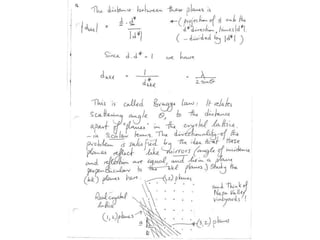 The distance between these planes is
|d_hkl| = d · d* / |d*| ← (projection of d onto the
d* direction, times |d*|
(- divided by |d*|)
Since d · d* = 1 we have
d_hkl = 1 / d*_hkl = λ / 2 sinθ
This is called Braggs law: It relates
scattering angle θ, to the distance
apart of planes in the crystal lattice,
- in scalar terms. The directionality of the
problem is satisfied by the idea that these
planes reflect like mirrors (angle of incidence
and reflection are equal, and lie in a plane
perpendicular to the hkl planes) Study the
(hk) planes here
(1,2) planes
and Think of
Napa Valley
vineyards!
Real crystal
lattice
(1,1) planes
(3,2) planes